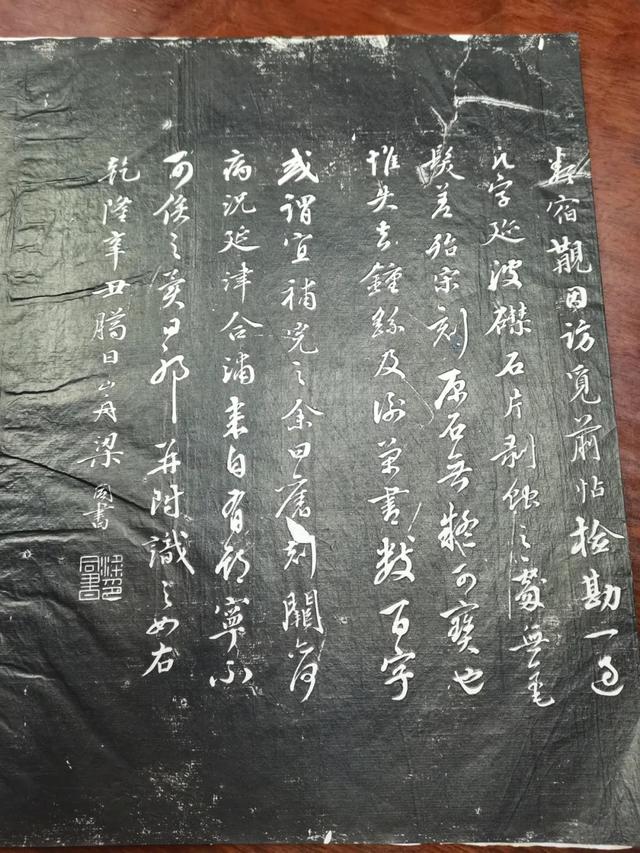 宿觀因訪覓前帖檢勘一過
凡字跡波磔石片剥蝕之處無毫
髮差殆宋刻原石無疑可寶也
惟失去鍾繇及謝萬書數百字
或謂宜補完之余曰舊刻闕何
病況延津合浦来自有期寧不
可俟之異日邪并附識之如右
乾隆辛丑臈日山舟梁同書